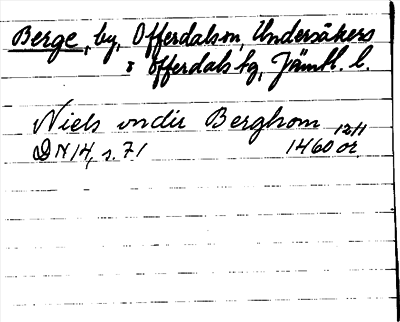 Berge, by, Offerdals sn, Undersåkers
o. Offerdals tg, Jämtl. l.
Niels vndir Berghom
DN 14, s. 71 1460 12/11 or.